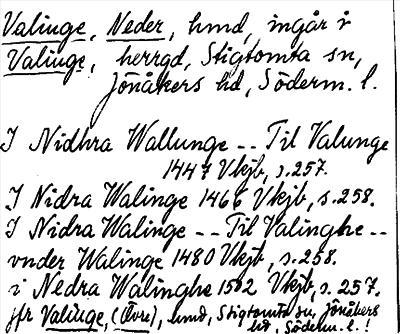 Valinge, Neder, hmd, ingår i
Valinge, herrgd, Stigtomta sn,
Jönåkers hd, Söderm. l.
I Nidhra Wallunge -- Til Valunge
1447 Vkjb, s. 257.
I Nidra Walinge 1466 Vkjb, s. 258.
I Nidra Walinge -- Til Valinghe --
vnder Walinge 1480 Vkjb, s. 258.
i Nedra Walinghe 1502 Vkjb, s. 257.
jfr Valinge, (Övre), hmd, Stigtomta sn, Jönåkers
hd, Söderm. l.!